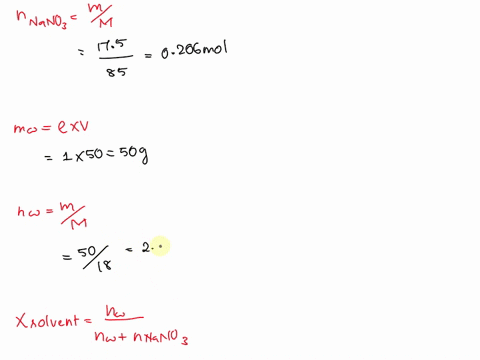 n NaNO3 = m/M
= 17.5/85 = 0.206 mol
mω = ρ x V
= 1 x 50 = 50g
nω = m/M
= 50/18 = 2.
X solvent = nω / nω + nNaNO3